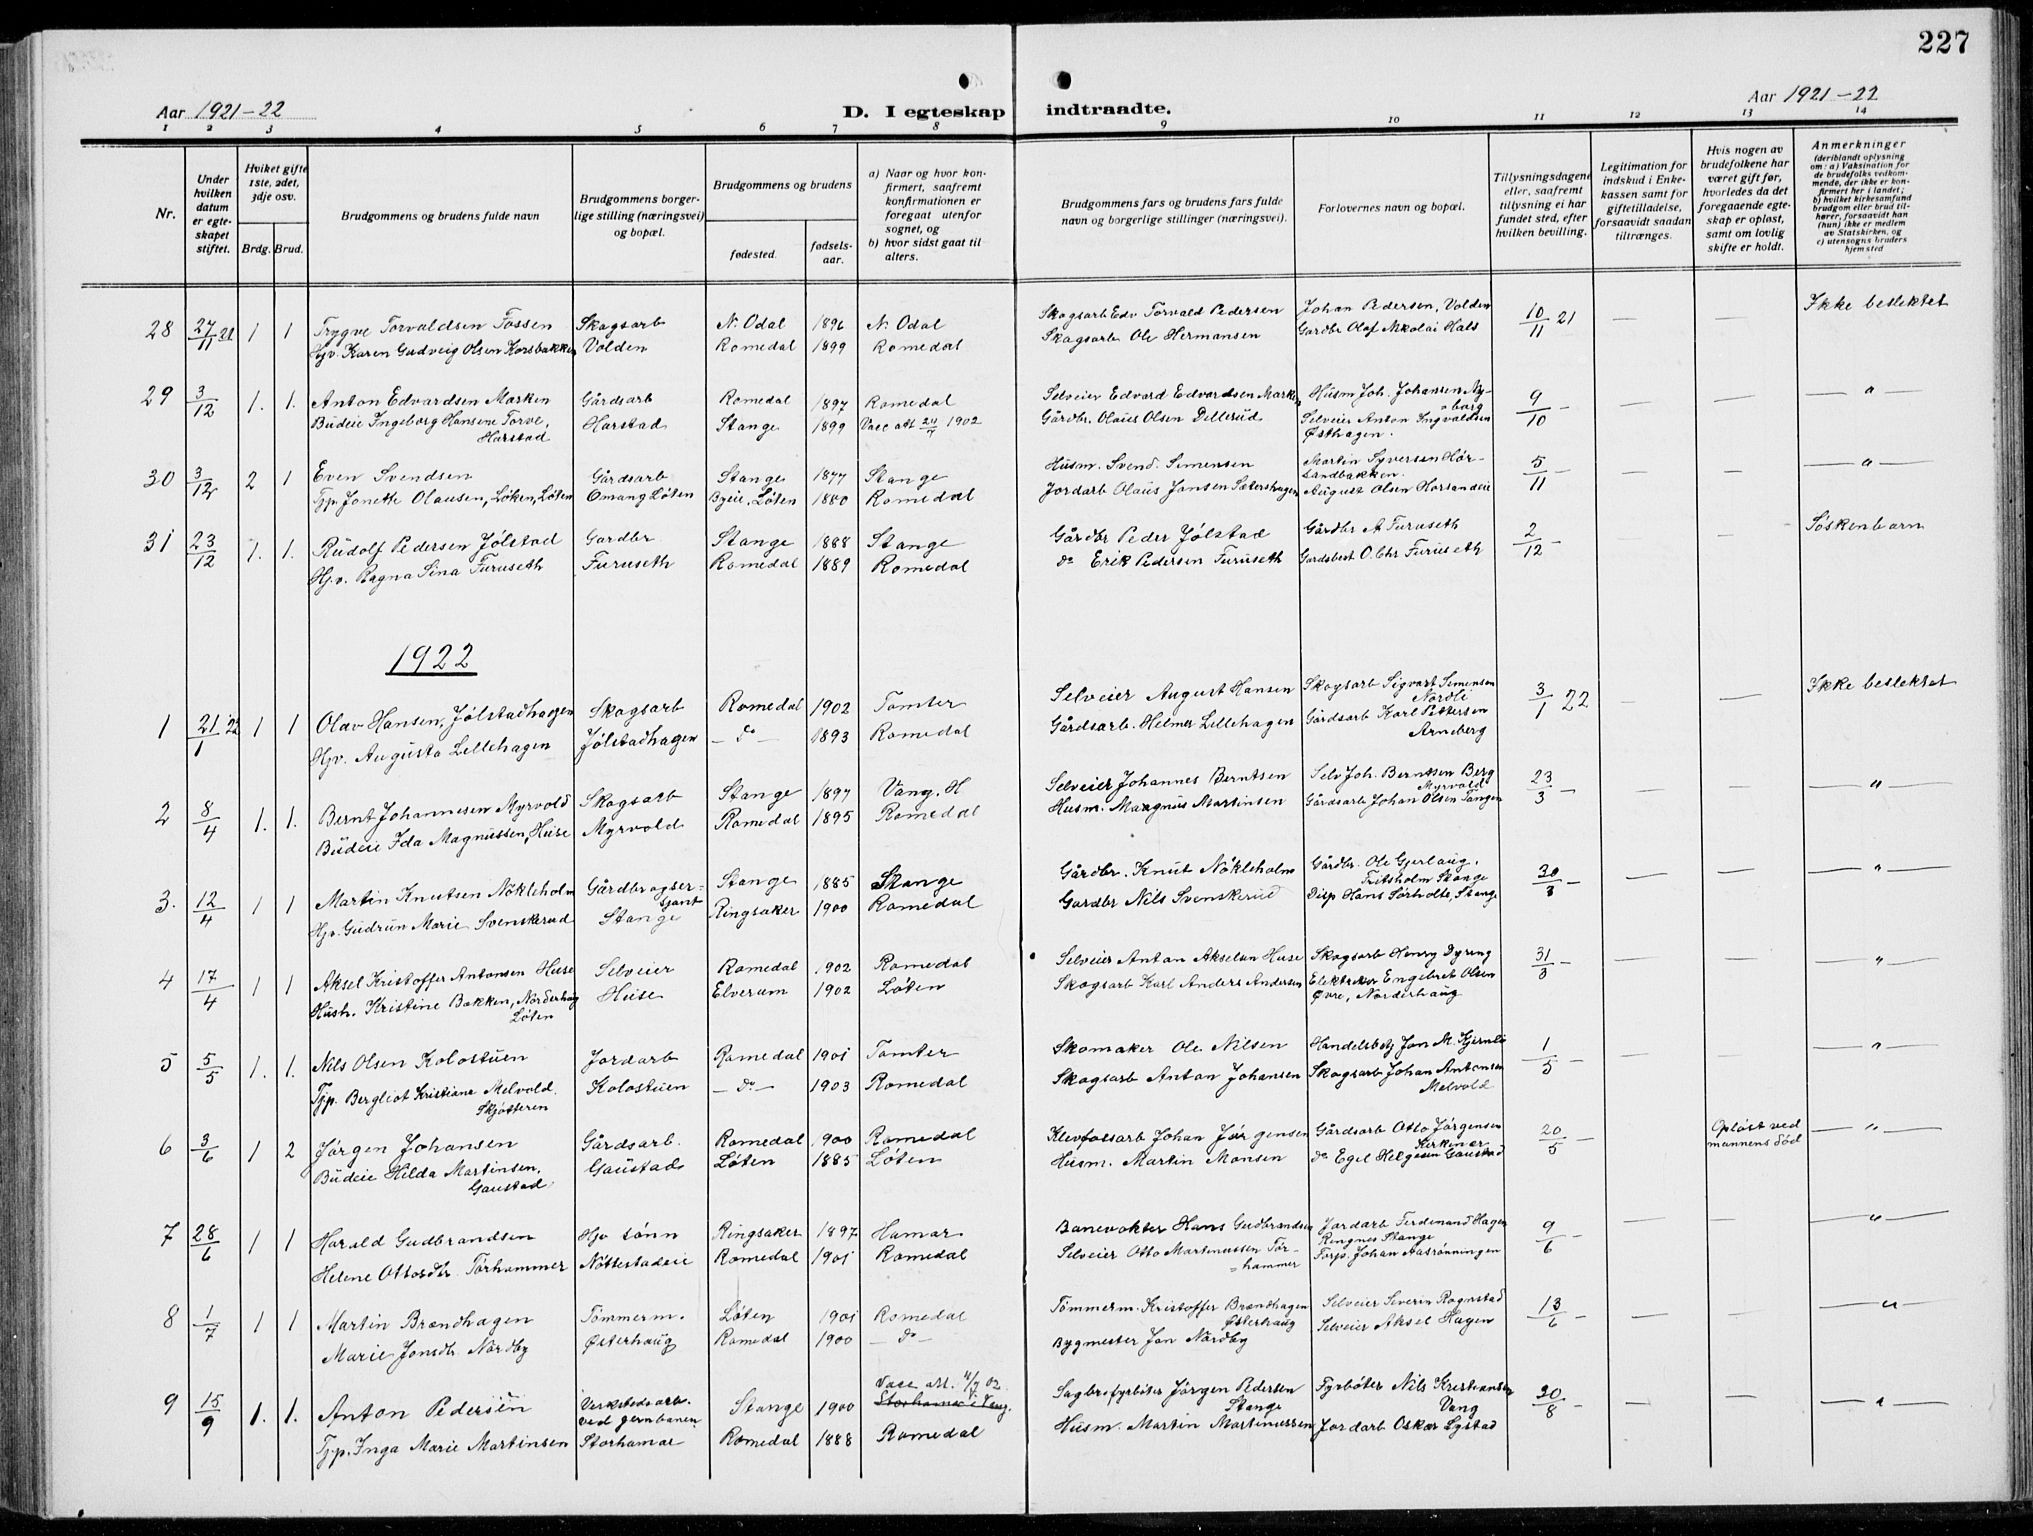 227
Aar 1921-22
D. I egteskap indtraadte.
Aar 1921-22
1 2 3 4 5 6 7 8 9 10 11 12 13 14
Nr.
Under hvilken datum er egteskapet stiftet.
Hviket gifte 1ste, 2det, 3dje osv.
Brdg. Brud.
Brudgommens og brudens fulde navn
Brudgommens borgerlige stilling (næringsvei) og bopæl.
Brudgommens og brudens
fødested.
fødselsaar.
a) Naar og hvor konfirmert, saafremt konfirmationen er foregaat utenfor sognet, og
b) hvor sidst gaat til alters.
Brudgommens fars og brudens fars fulde navn og borgerlige stillinger (næringsvei).
Forlovernes navn og bopæl.
Tillysningsdagene eller, saafremt tillysning ei har fundet sted, efter hvilken bevilling.
Legitimation for indskud i Enkekassen samt for giftetilladelse, forsaavidt saadan tiltrænges.
Hvis nogen av brudefolkene har været gift før, hvorledes da det foregaaende egteskap er opløst, samt om lovlig skifte er holdt.
Anmerkninger
(deriblandt oplysning om: a) Vaksination for de brudefolks vedkommende, der ikke er konfirmert her i landet; b) hvilket kirkesamfund brudgom eller brud tilhører, forsaavidt han (hun) ikke er medlem av Statskirken, og c) utensogns bruders hjemsted
28 27/11 21 1 1 Trygve Torvaldsen Fossen Skogsarb N. Odal 1896 N. Odal Skogsarb Edv Torvald Pedersen Johan Pedersen, Volden 10/11 21 — — Ikke beslektet
Hjv. Karen Gudveig Olsen Korsbakken Volden Romedal 1899 Romedal Skogsarb Ole Hermansen Gardbr Olaf Nikolai Hals
29 3/12 1. 1. Anton Edvardsen Marken Gårdsarb Romedal 1897 Romedal Selveier Edvard Edvardsen Marken Husm Joh. Johansen Ny- 9/10 — — — — " —
Budeie Ingeborg Hansene Torve, Harstad Stange 1899 Vacc att 24/7 1902 Gårdbr. Olaus Olsen Dellerud =borg
Harstad Selveier Anton Ingvaldsen
Østhagen.
30 3/12 2 1 Even Svendsen Gårdsarb Stange 1877 Stange Husm. Svend. Simensen Martin Syversen Hør- 5/11 — — — — " —
Tjp. Jonette Olausen, Løken, Løten Omang Løten Byeie. Løten 1880 Romedal Jordarb Olaus Jansen Sætershagen sandbakken.
August Olsen Horsandeie
31 23/12 1. 1. Rudolf Pedersen Jølstad Gardbr Stange 1888 Stange Gårdbr Peder Jølstad Gårdbr A Furuseth 2/12 — — Søskenbarn
Hjv. Ragna Sina Furuseth Furuseth Romedal 1889 Romedal do Erik Pedersen Furuseth Gardsbest O. Chr Furuseth
1922
1 21/1 22 1 1 Olav Hansen, Jølstadhagen Skogsarb Romedal 1902 Tomter Selveier August Hansen Skogsarb Sigvart Simensen 3/1 22 — — Ikke beslektet
Nordli
Hjv. Augusta Lellehagen Jølstadhagen — do — 1893 Romedal Gårdsarb. Helmer Lellehagen Gårdsarb Karl Pettersen
Arneberg
2 8/4 1. 1. Bernt Johannesen Myrvold Skogsarb Stange 1897 Vang. H Selveier Johannes Berntsen Selv Joh. Berntsen Berg 23/3 — — — "
Myrvold
Budeie Ida Magnussen, Huse Myrvold Romedal 1895 Romedal Husm. Magnus Martinsen Gårdsarb Johan Olsen Tangen
3. 12/4 1 1 Martin Knutsen Nökleholm Gårdbr og ser- Stange 1885 Stange Gårdbr. Knut Nökleholm Gårdbr. Ole Gjerlaug. 30/3 — — — — " —
gant Fritsholm Stange
Hjv. Gudrun Marie Svenskerud Stange Ringsaker 1900 Romedal Gardbr Nils Svenskerud Disp Hans Sørholte, Stange
4 17/4 1 1 Aksel Kristoffer Antonsen Huse Selveier Romedal 1902 Romedal Selveier Anton Akselsen Huse Skogsarb Henry Dyring 31/3 — — — " —
Hush. Kristine Bakken, Norderhaug Huse Elverum 1902 Løten Skogsarb Karl Anders Andersen Elektriker Engebret Olsen
Løten Øvre, Norderhaug
5 5/5 1. 1. Nils Olsen Kolostuen Jordarb Romedal 1901 Tomter Skomaker Ole Nilsen Handelsbtj Jon M. Kjernli 1/5 — — — — " —
Tjp. Bergliot Kristiane Melvold. Kolostuen — do — 1903 Romedal Skogsarb Anton Johansen Skogsarb Johan Antonsen
Skjøtteren Melvold
6 3/6 1 2 Jørgen Johansen Gårdsarb. Romedal 1900 Romedal Klevfosarb Johan Jørgensen Gårdsarb Otto Jørgensen 20/5 — Opløst ved — " —
Kirkener mannens død
Budeie Hilda Martinsen, Gaustad Løten 1885 Løten Husm. Martin Monsen do Egil Helgesen Gaustad
Gaustad
7 28/6 1 1 Harald Gudbrandsen Hjv sønn Ringsaker 1897 Hamar Banevokter Hans Gudbrandsen Jordarb Ferdinand Hagen 9/6 — — — — " —
Ringnes Stange
Helene Ottosdtr Tørhammer Nøttestadeie Romedal 1901 Romedal Selveier Otto Martinussen Tør- Forp. Johan Aasrønningen
=hammer
8 1/7 1 1 Martin Brændhagen Tømmerm. Løten 1901 Romedal Tømmerm. Kristoffer Brændhagen Selveier Severin Rognstad 13/6 — — — — " —
Østerhaug
Marie Jonsdtr. Nordby Østerhaug Romedal 1900 — do — Bygmester Jon Nordby Selveier Aksel Hagen
9 15/9 1. 1. Anton Pedersen Verkstedsarb. Stange 1900 Vacc att. 4/7 02. Sagbrsfyrbøter Jørgen Pedersen Fyrbøter Nils Kristiansen 30/8 — — — — " —
ved jernbanen Storhamar i Vang. Stange Vang
Tjp. Inga Marie Martinsen Storhamar Romedal 1888 Romedal Husm. Martin Martinussen Jordarb Oskar Lystad